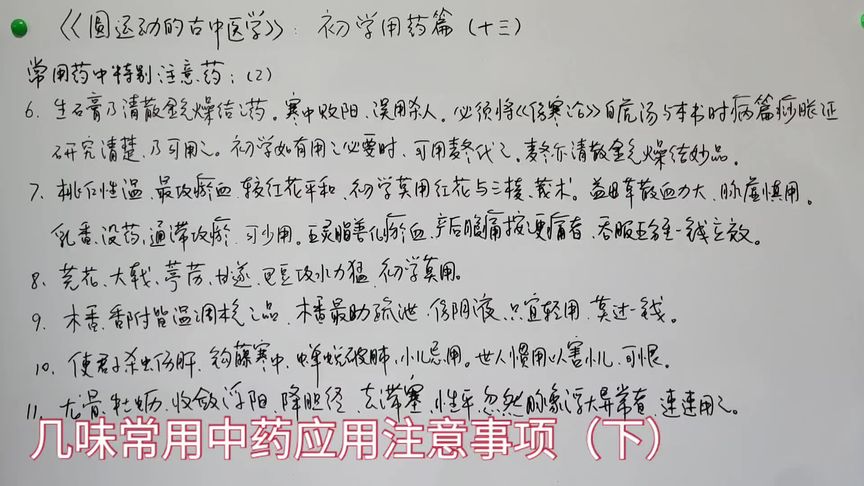 《圆运动的古中医学》：初学用药篇（十三）
常用药中特别注意药：（2）
6、生石膏乃清散金气燥结之药。寒中败阳、误用杀人。必须将《伤寒论》白虎汤与本书时病篇疹胀证
研究清楚、乃可用之。初学如有用之必要时、可用麦冬代之。麦冬亦清散金气燥结妙品。
7、桃仁性温、最攻瘀血、较红花平和、初学莫用红花与三棱、莪术。益母草散血力大、脉虚慎用。
乳香、没药、通滞攻瘀、可少用。五灵脂善化瘀血、产后腹痛按之更痛者、吞服五分至一钱立效。
8、芫花、大戟、葶苈、甘遂、巴豆攻水力猛、初学莫用。
9、木香、香附皆温调木气之品、木香最助疏泄、伤阴液、只宜轻用、莫过一钱。
10、使君子杀虫伤肝、钩藤寒中、蝉蜕破肺、小儿忌用。世人惯用以害小儿、可恨。
11、龙骨、牡蛎、收敛浮阳、降胆经、去滞塞、性平、忽然脉象浮大异常者、速速用之。
几味常用中药应用注意事项（下）